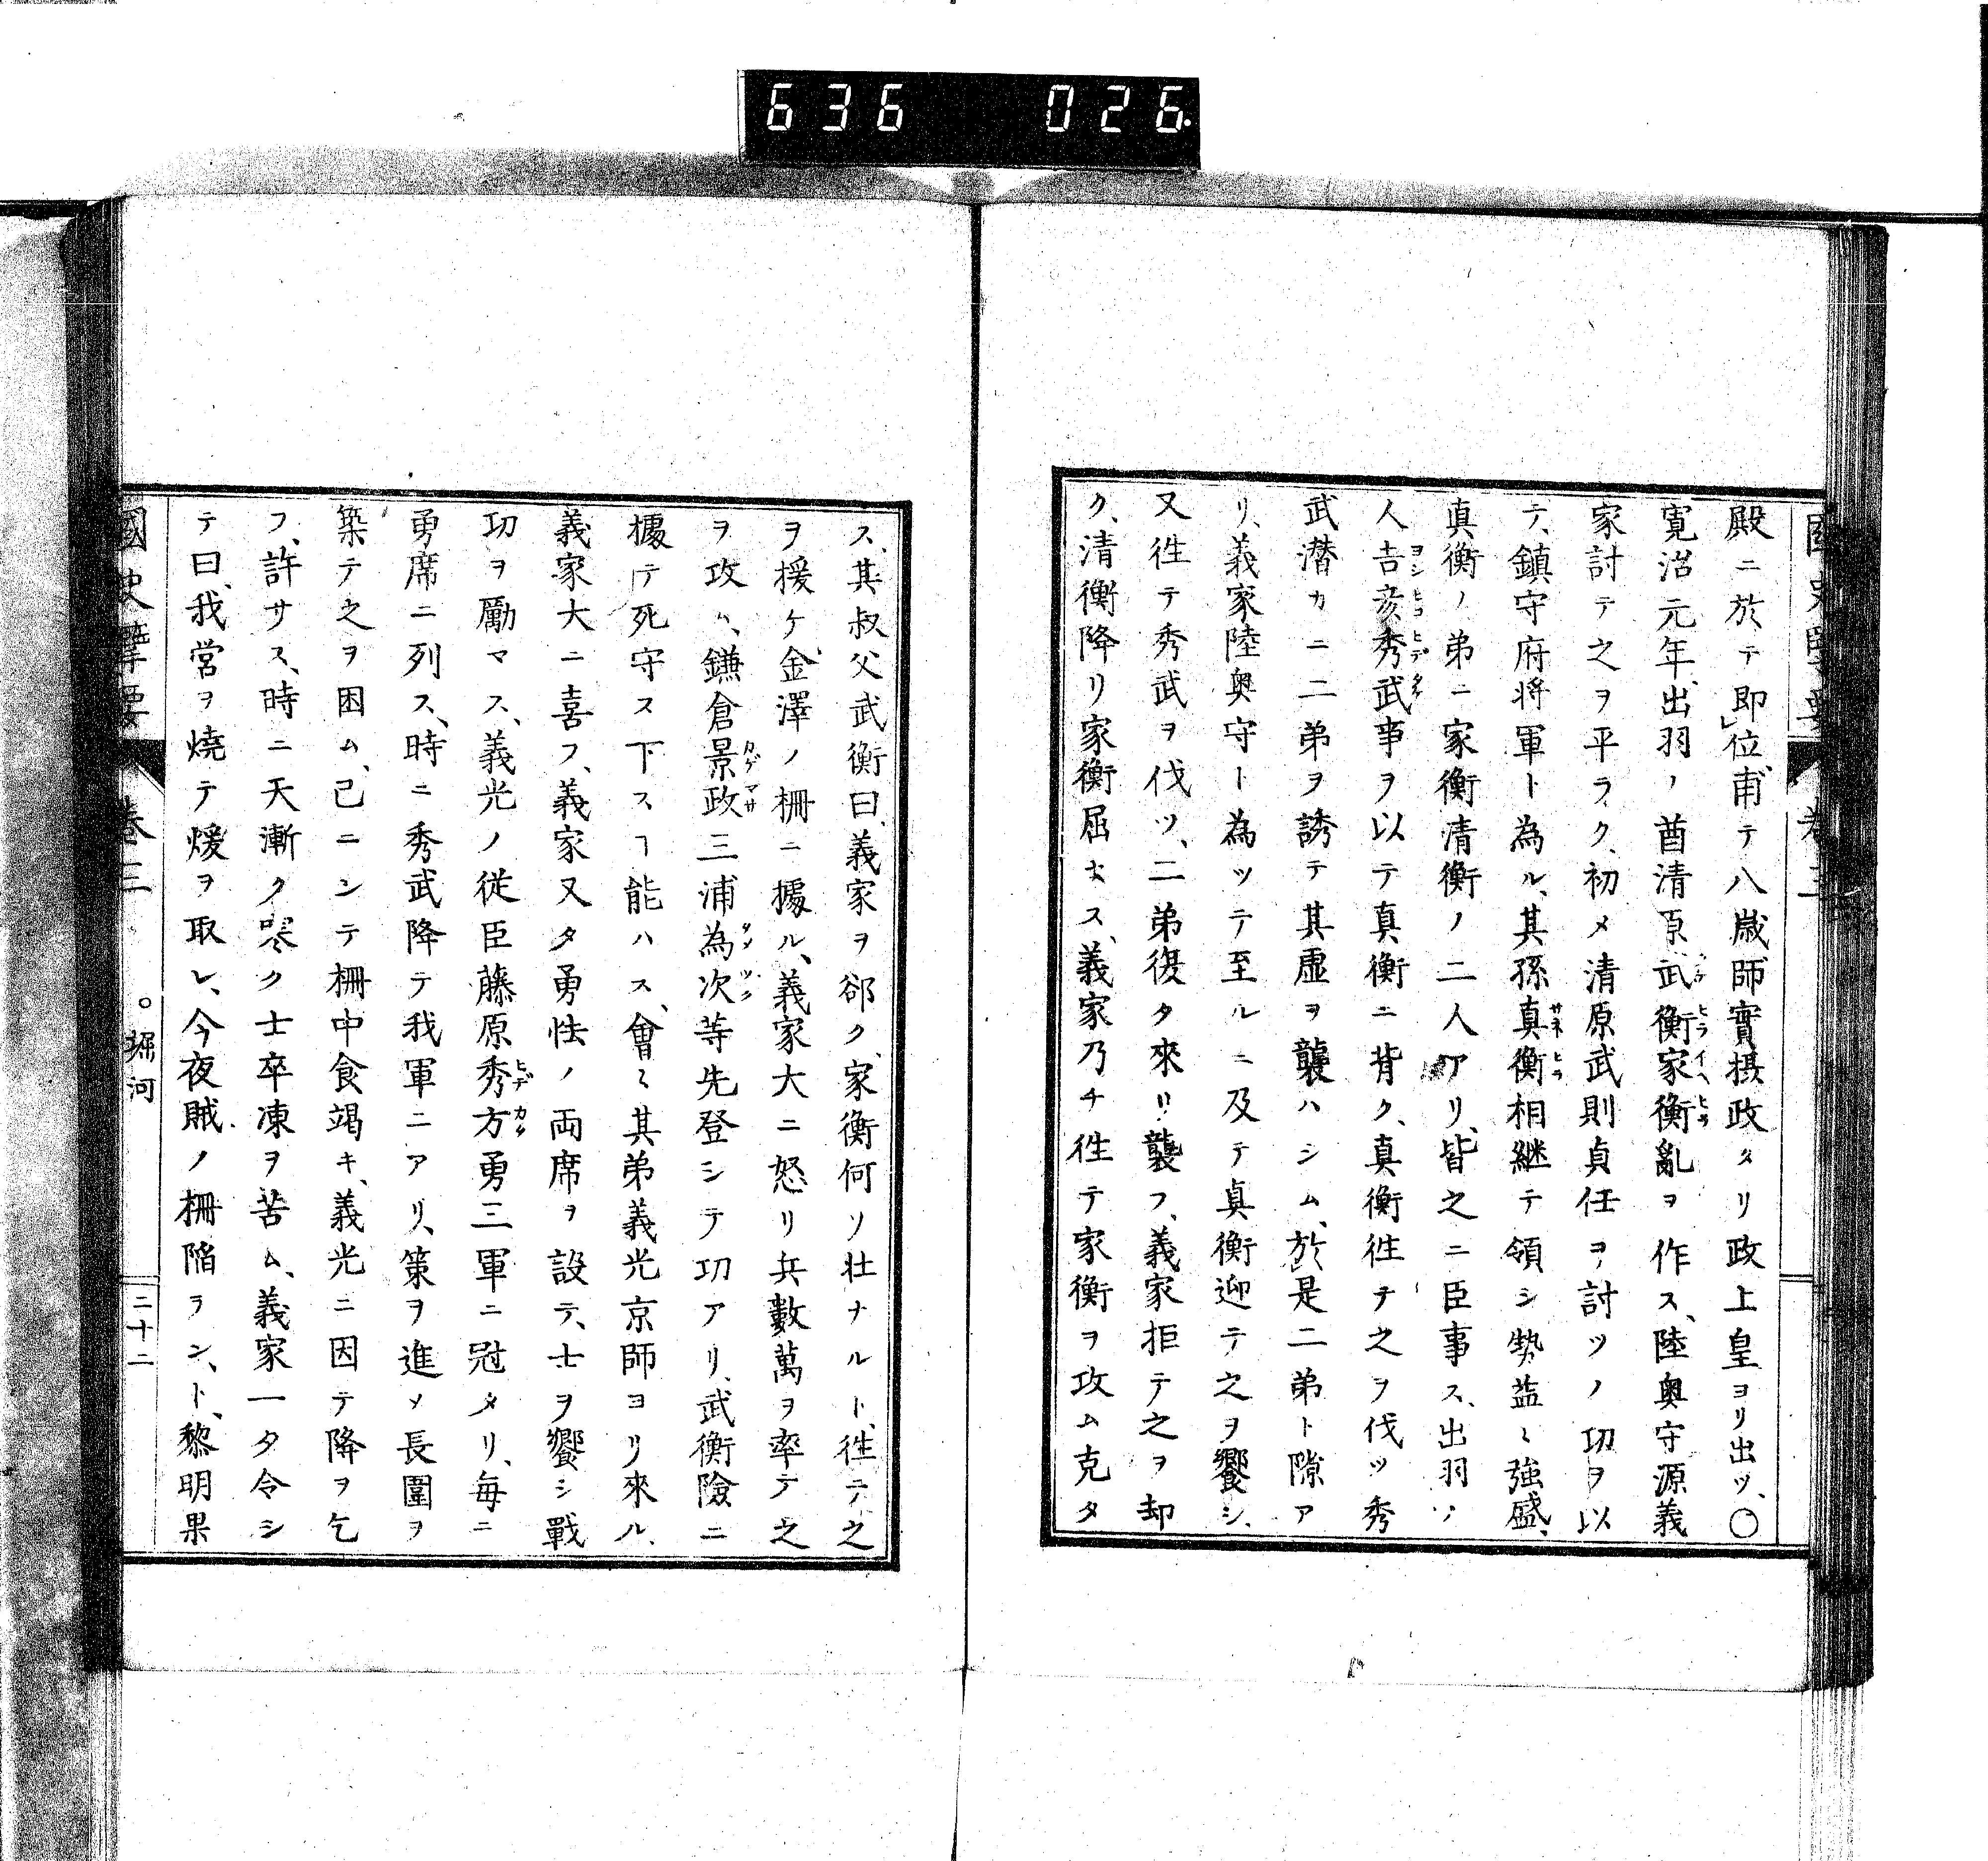 636 026
殿ニ於テ即位、甫テ八歳、師實摂政タリ政上皇ヨリ出ツ、〇
寛治元年、出羽ノ酋清原武衡家衡亂ヲ作ス、陸奥守源義
家討テ之ヲ平ラク、初メ清原武則貞任ヲ討ツノ功ヲ以
テ、鎮守府将軍ト為ル、其孫真衡相継テ領シ勢益〻強盛、
真衡ノ弟ニ家衡清衡ノ二人アリ、皆之ニ臣事ス、出羽ノ
人吉彦秀武事ヲ以テ真衡ニ背ク、真衡徃テ之ヲ伐ツ秀
武潜カニ二弟ヲ誘テ其虚ヲ襲ハシム、於是二弟ト隙ア
リ、義家陸奥守ト為ツテ至ルニ及テ真衡迎テ之ヲ饗シ、
又徃テ秀武ヲ伐ツ、二弟復タ來リ襲フ、義家拒テ之ヲ却
ク、清衡降リ家衡屈セス、義家乃チ徃テ家衡ヲ攻ム克タ
ス、其叔父武衡曰、義家ヲ郤ク、家衡何ソ壮ナルト、徃テ之
ヲ援ケ、金澤ノ柵ニ據ル、義家大ニ怒リ兵數萬ヲ率テ之
ヲ攻ム、鎌倉景政三浦為次等先登シテ功アリ、武衡險ニ
據テ死守ス下スヿ能ハス、會〻其弟義光京師ヨリ來ル、
義家大ニ喜フ、義家又タ勇怯ノ両席ヲ設テ、士ヲ饗シ戰
功ヲ勵マス、義光ノ従臣藤原秀方勇三軍ニ冠タリ、毎ニ
勇席ニ列ス、時ニ秀武降テ我軍ニアリ、策ヲ進メ長圍ヲ
築テ之ヲ困ム、已ニシテ柵中食竭キ、義光ニ因テ降ヲ乞
フ、許サス、時ニ天漸ク寒ク士卒凍ヲ苦ム、義家一夕令シ
テ曰、我営ヲ焼テ煖ヲ取レ、今夜賊ノ柵陥ラン、ト、黎明果
國史擥要 卷三 〇堀河 二十二